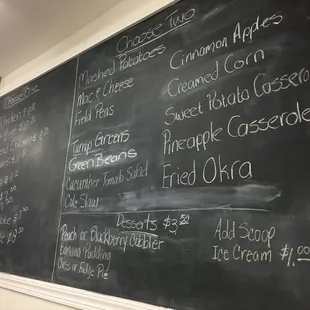 Choose Two
Mashed Potatoes
Mac & Cheese
Field Peas
Turnip Greens
Green Beans
Cucumber Tomato Salad
Cole Slaw
Cinnamon Apples
Creamed Corn
Sweet Potato Casserol
Pineapple Casserole
Fried Okra
Desserts $3.50
Peach or Blackberry Cobbler
Banana Pudding
Chess or Fudge Pie
Add Scoop
Ice Cream $1.00